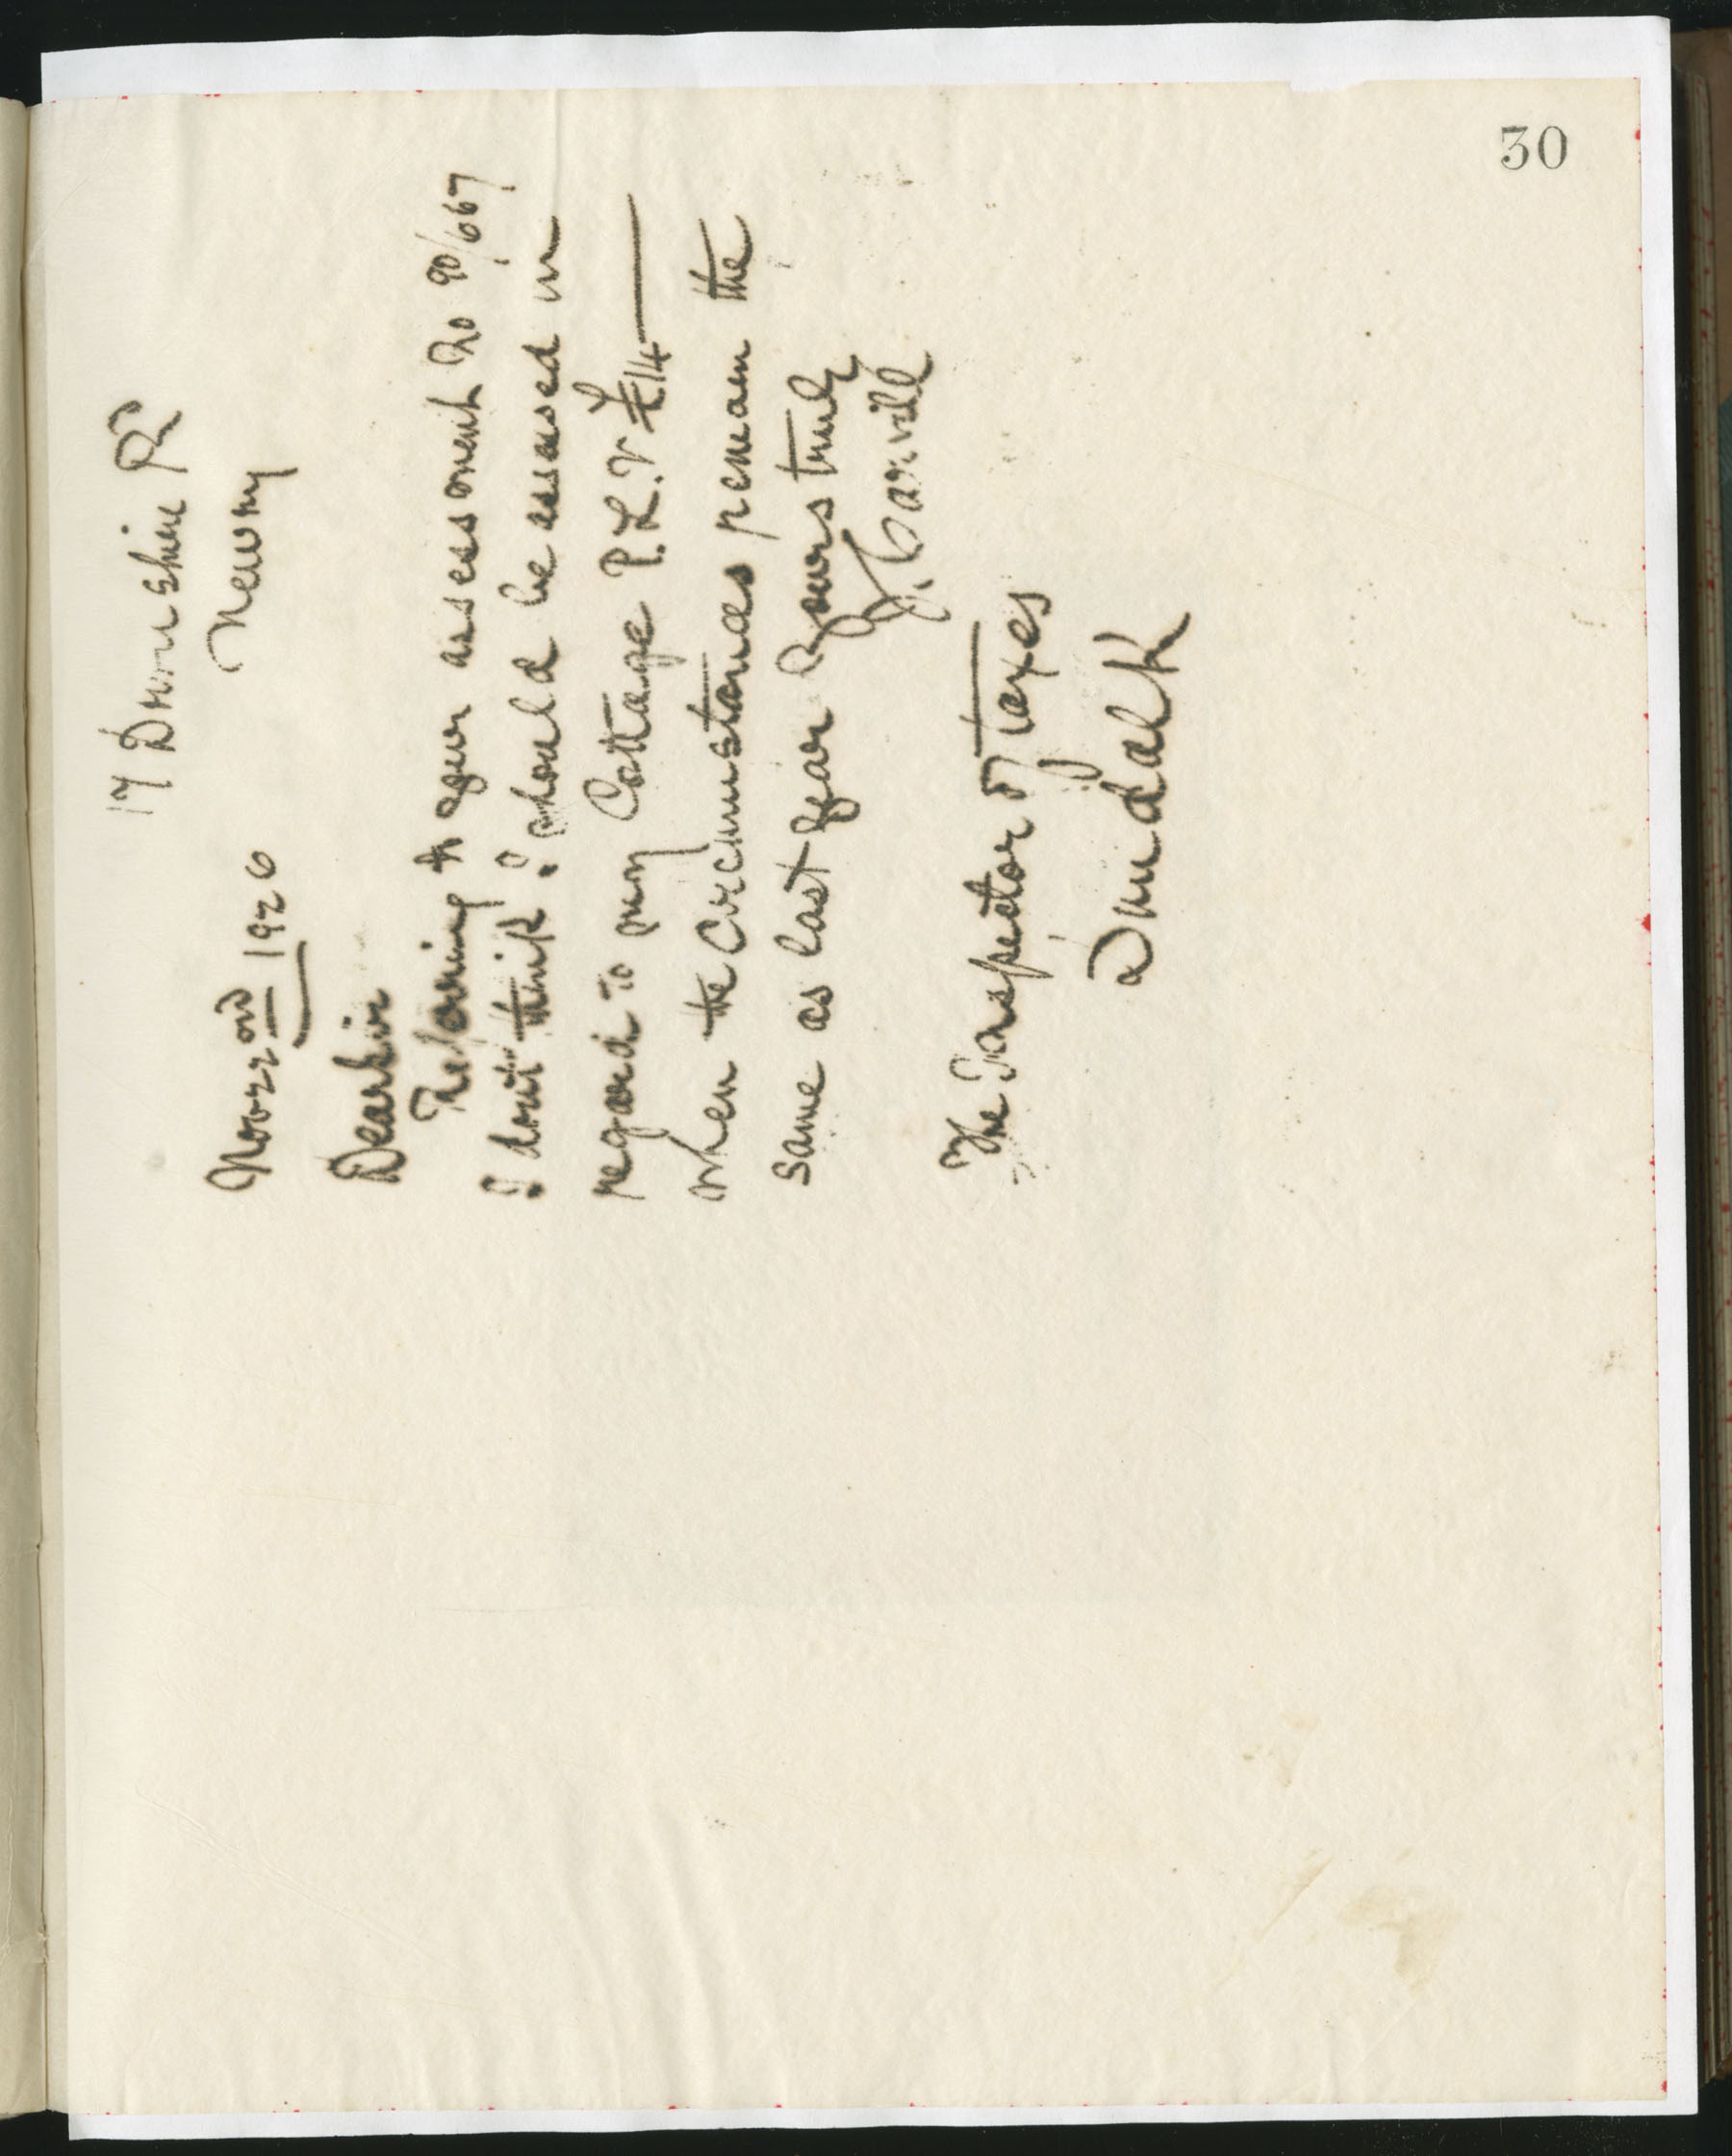 30
17 Downshire Rd
Newry
Nov 22nd 1926
Dear Sir
Referring to your assessment No 90/667
I dont think I should be assessed in
regard to my Cottage P.L.V £14
when the Circumstances remain the
same as last year Yours truly
J. Carvill
The Inspector of Taxes
Dundalk